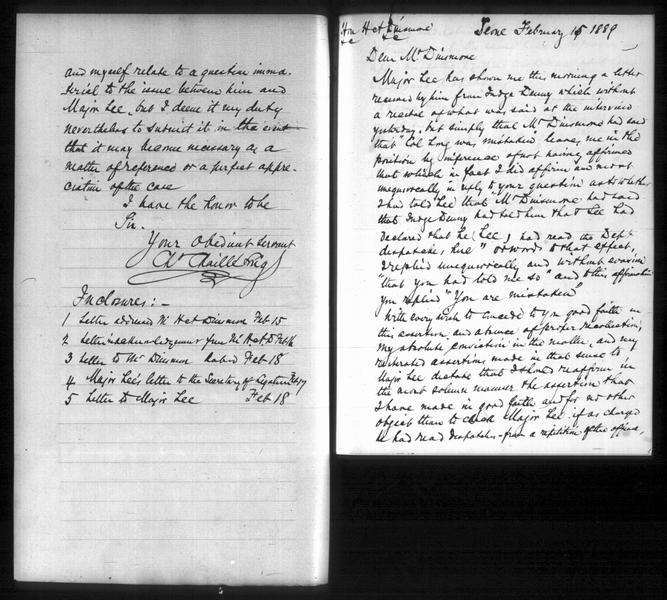 and myself relate to a question imma-
terial to the issue between him and
Major Lee, but I deem it my duty
nevertheless to submit it in the event
that it may become necessary as a
matter of reference or a perfect appre-
ciation of the case
I have the honor to be
Sir.
Your Obedient Servant
Ch. Chaillé Long
Inclosures:-
1 Letter addressed Mr H A Dinsmore Feb 15
2 Letter in acknowledgment from Mr H A D Feb 16
3 Letter to Mr Dinsmore Feb 18
4 Major Lee's letter to the Secretary of Legation Feb 17
5 Letter to Major Lee Feb 18
Hon H A Dinsmore
Seoul February 15 1889
Dear Mr Dinsmore
Major Lee has shown me this morning a letter
received by him from Judge Denny which without
a recital of what was said at the interview
yesterday, but simply that Mr Dinsmore had said
that "Col Long was mistaken" leaves me in the
position by inference of not having affirmed
that which in fact I did affirm and most
unequivocally in reply to your question as to whether
I had told Lee that "Mr Dinsmore had said
that Judge Denny had told him that Lee had
declared that he (Lee) had read the Dept
despatches, here" or words to that effect,
I replied unequivocally and without evasion
"that you had told me so" and to this affirmation
you replied "You are mistaken"
With every wish to concede to you good faith in
this assertion and absence of proper recollection,
my absolute conviction in the matter, and my
reiterated assertions made in that sense to
Major Lee dictate that I should reaffirm in
the most solemn manner the assertion that
I have made in good faith and for no other
object than to check Major Lee if as charged
he had read despatches - from a repetition of the offense,